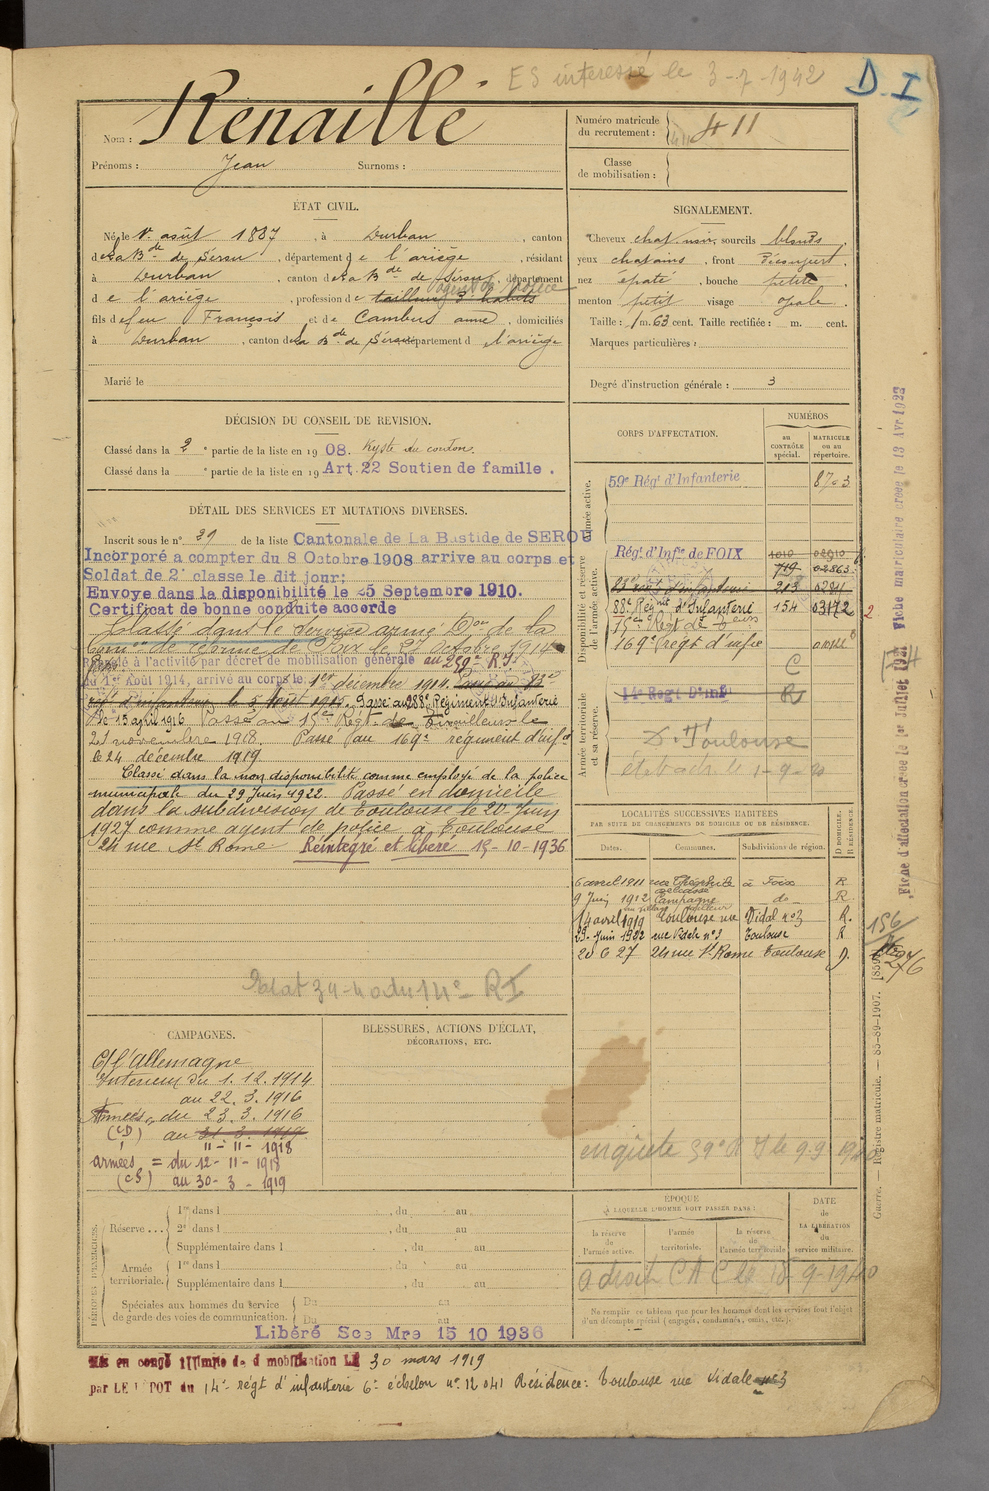 ES intéressé le 3-7-1942
D. I
Nom : Renaille
Prénoms : Jean Surnoms :
Numéro matricule
du recrutement : 411
Classe
de mobilisation :
ÉTAT CIVIL.
Né le 1er août 1887, à Durban, canton
de La Bde de Sérou, département de l'ariège, résidant
à Durban, canton de La Bde de Sérou, département
de l'ariège, profession de tailleur d'habits agent de police
fils de feu François et de Cambus anne, domiciliés
à Durban, canton de La Bde de Sérou département d l'ariège
Marié le
SIGNALEMENT.
Cheveux chat noir, sourcils blonds
yeux chatains, front
nez épaté, bouche petite
menton petit visage ovale
Taille : 1 m. 63 cent. Taille rectifiée : m. cent.
Marques particulières :
Degré d'instruction générale : 3
DÉCISION DU CONSEIL DE REVISION.
Classé dans la 2e partie de la liste en 1908. Kyste du cordon.
Classé dans la e partie de la liste en 19 Art. 22 Soutien de famille.
DÉTAIL DES SERVICES ET MUTATIONS DIVERSES.
Inscrit sous le n° 29 de la liste Cantonale de La Bastide de SEROU
Incorporé a compter du 8 Octobre 1908 arrive au corps et
Soldat de 2e classe le dit jour:
Envoye dans la disponibilité le 25 Septembre 1910.
Certificat de bonne conduite accorde
Classé dans le Service armé Don de la
Comon de réforme de Foix le 21 octobre 1914
Rappelé à l'activité par décret de mobilisation générale au 259e R.I.
du 1er Août 1914, arrivé au corps le 1er décembre 1914. Passé au 83e
régt d'infanterie le 5 Août 1915. Passé au 288e Régiment d'Infanterie
le 15 avril 1916 Passé au 15e Régt de Tirailleurs le
21 novembre 1918. Passé au 169e régiment d'infie
le 24 décembre 1919
Classé dans la non disponibilité comme employé de la police
municipale du 29 Juin 1922. Passé en domicile
dans la subdivision de Toulouse le 20 Juin
1927 comme agent de police à Toulouse
24 rue St Rome Réintégré et libéré 15-10-1936
14e RI
CORPS D'AFFECTATION.
NUMÉROS
au
CONTRÔLE
spécial.
MATRICULE
ou au
répertoire.
Armée active.
59e Régt d'Infanterie 8703
Disponibilité et réserve
de l'armée active.
Régt d'Infie de FOIX
719 02863
83e régt d'infanterie 213
88e Régint d'Infanterie 154 03172
15e Régt de
169e régt d'infie
Armée territoriale
et sa réserve.
14e Regt D'inf
D. Toulouse
LOCALITÉS SUCCESSIVES HABITÉES
PAR SUITE DE CHANGEMENTS DE DOMICILE OU DE RÉSIDENCE.
Dates. Communes. Subdivisions de région. D DOMICILE. R RÉSIDENCE
6 avril 1911 rue à Foix R
9 Juin 1912 Campagne do R
14 avril 1919 Toulouse rue Vidal n° 3 R.
29 Juin 1922 rue Vidale n° 3 Toulouse R
20 6 27 24 rue St Rome Toulouse D.
CAMPAGNES.
C/ l'Allemagne
Intérieur du 1. 12. 1914
au 22. 3. 1916
Armées du 23. 3. 1916
(CD) au 31. 3. 1919
11-11-1918
armées = du 12-11-1918
(CS) au 30-3-1919
BLESSURES, ACTIONS D'ÉCLAT,
DÉCORATIONS, ETC.
enquête le 9.9.1940
PÉRIODES D'EXERCICES.
Réserve ... 1re dans l , du au
2e dans l , du au
Supplémentaire dans l , du au
Armée
territoriale. 1re dans l , du au
Supplémentaire dans l , du au
Spéciales aux hommes du service
de garde des voies de communication. Du au
Du au
Libéré Sce Mre 15 10 1936
ÉPOQUE
À LAQUELLE L'HOMME DOIT PASSER DANS :
la réserve
de
l'armée active.
l'armée
territoriale.
la réserve
de
l'armée territoriale
DATE
de
LA LIBÉRATION
du
service militaire.
a droit C A C
Ne remplir ce tableau que pour les hommes dont les services font l'objet
d'un décompte spécial (engagés, condamnés, omis, etc.).
Mis en congé illimité de démobilisation LE 30 mars 1919
par LE DEPOT du 14e régt d'infanterie 6e échelon n° 12041 Résidence : Toulouse rue Vidale n° 3
Fiche d'affectation créée le 1er Juillet 1921 Fiche matriculaire créée le 13 Avr 1922
156
276
Guerre. — Registre matricule. — 85-89-1907.